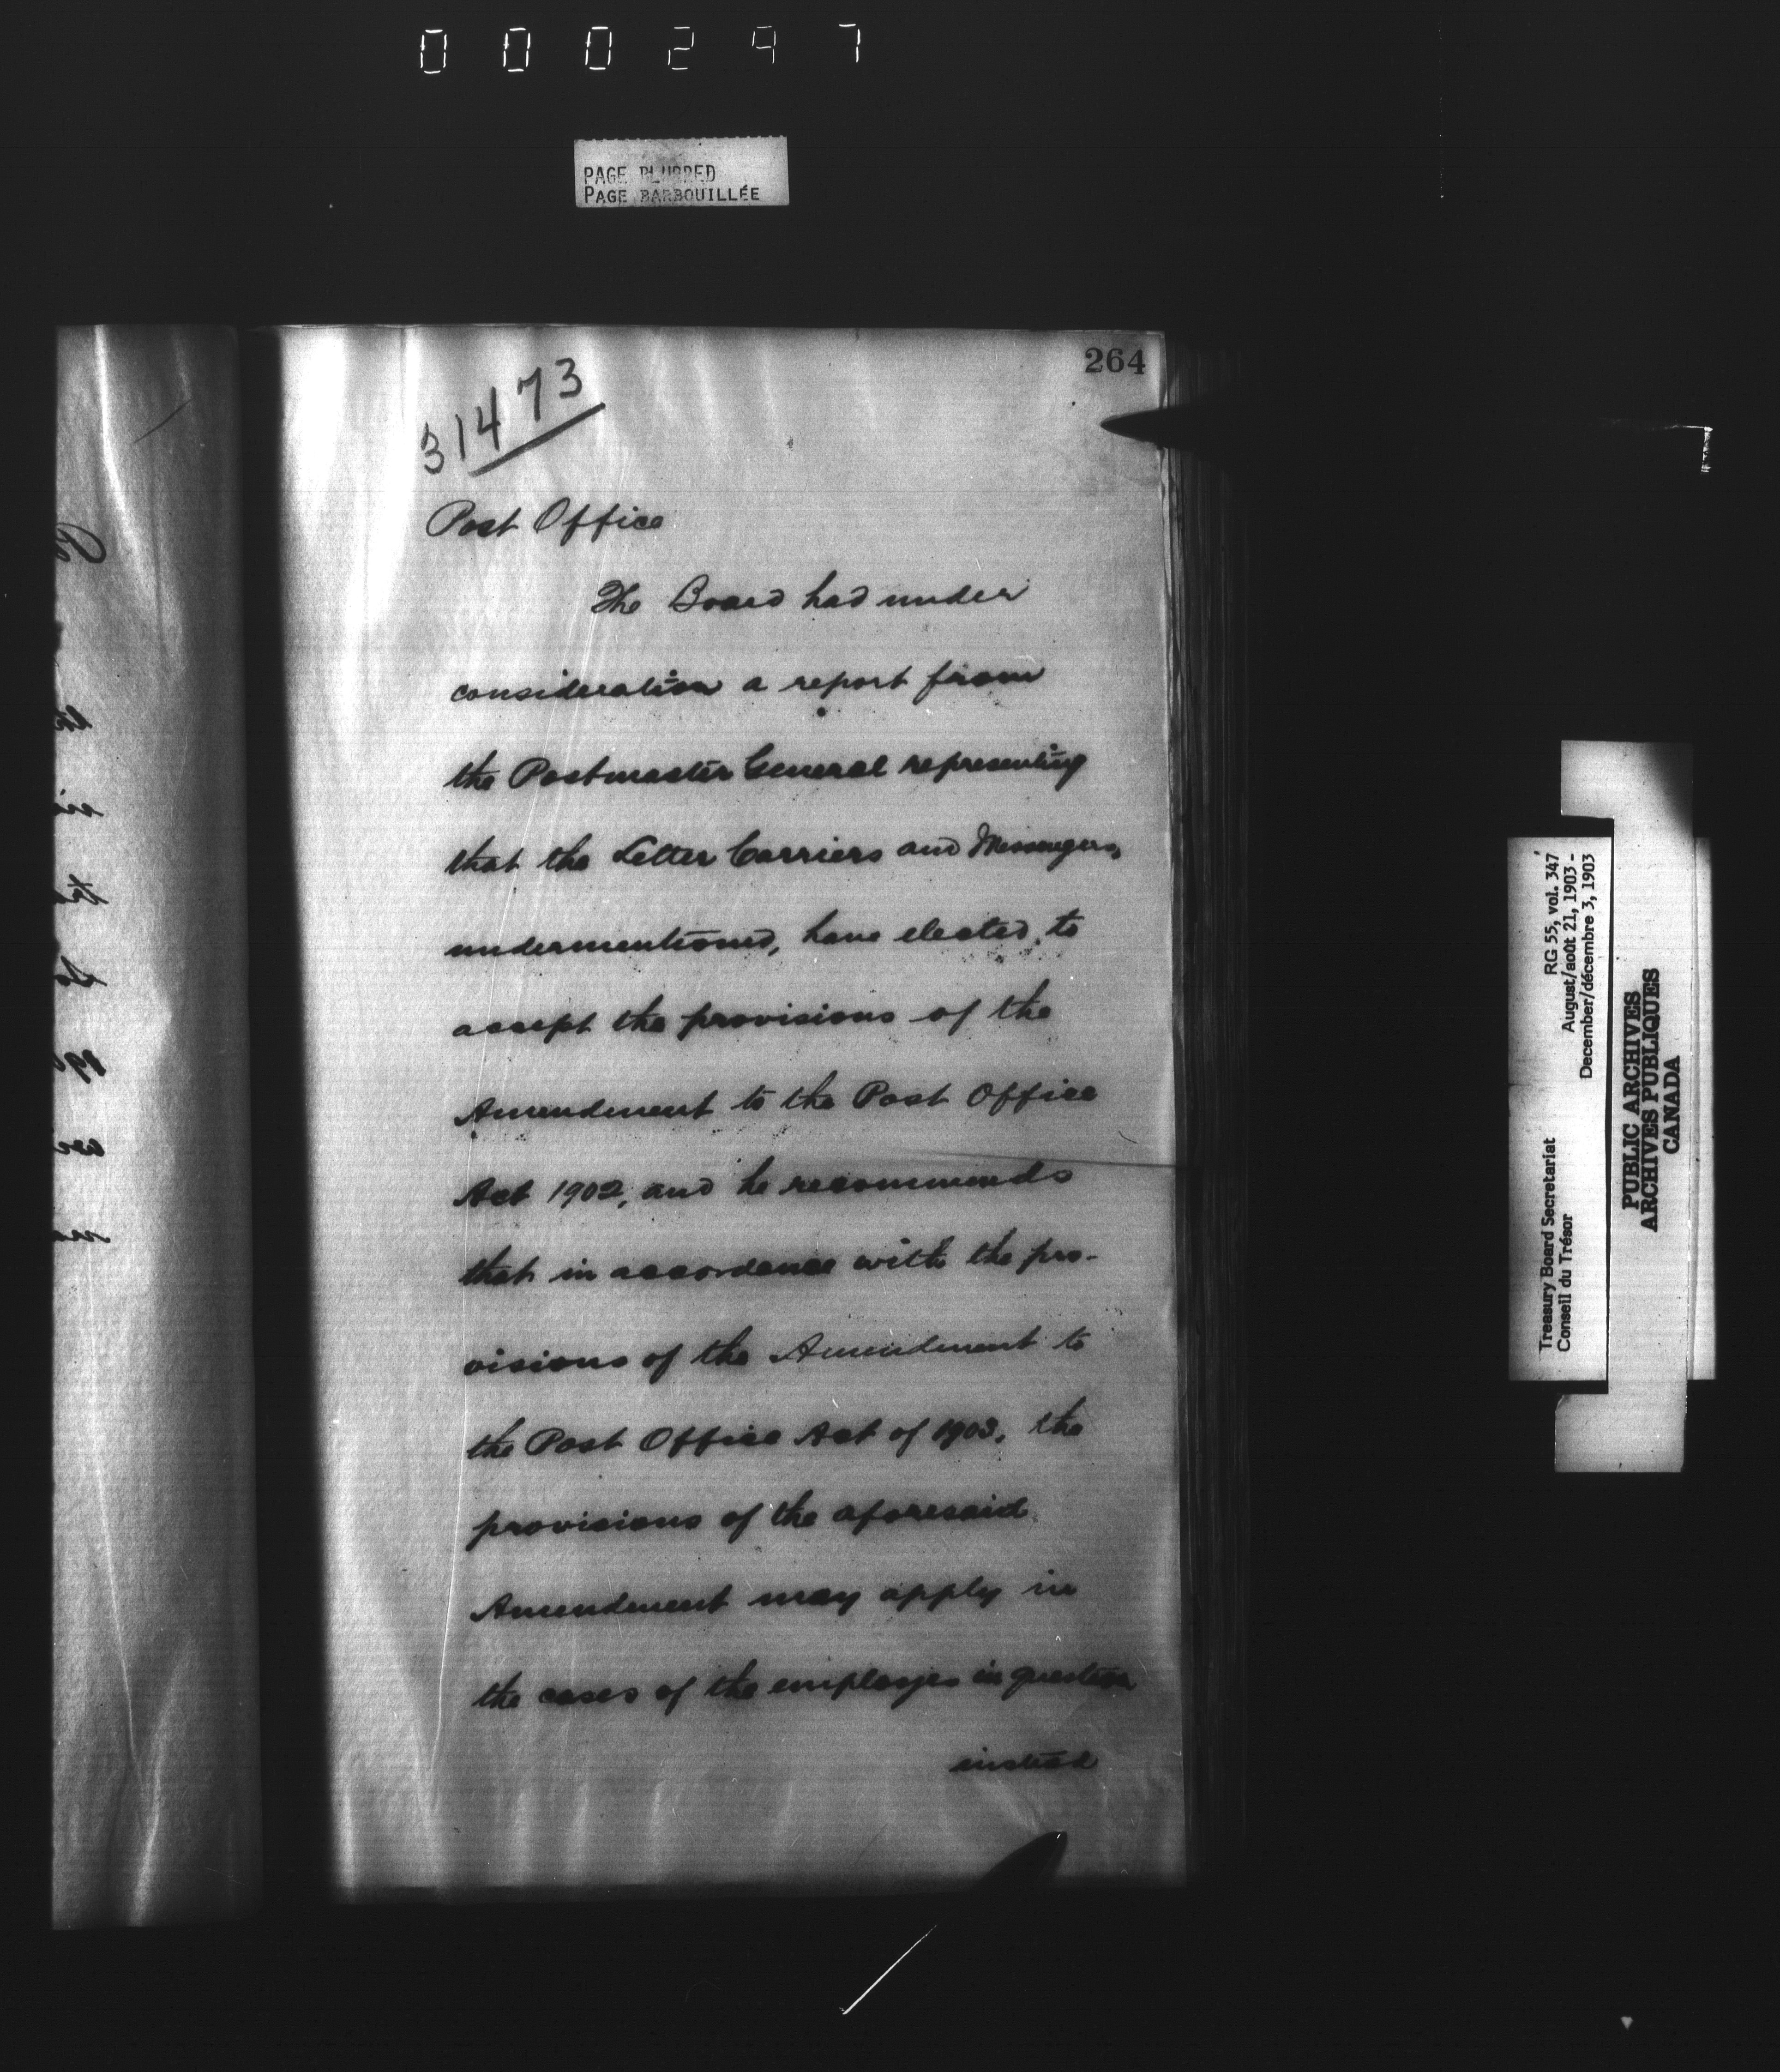 000297
PAGE BLURRED
PAGE BARBOUILLÉE
264
31473
Post Office
The Board had under
consideration a report from
the Postmaster General representing
that the Letter Carriers and Messengers,
undermentioned, have elected to
accept the provisions of the
Amendment to the Post Office
Act 1902, and he recommends
that in accordance with the pro-
visions of the Amendment to
the Post Office Act of 1903, the
provisions of the aforesaid
Amendment may apply in
the cases of the employes in question
instead
Treasury Board Secretariat RG 55, vol. 347
Conseil du Trésor August/août 21, 1903 -
December/décembre 3, 1903
PUBLIC ARCHIVES
ARCHIVES PUBLIQUES
CANADA